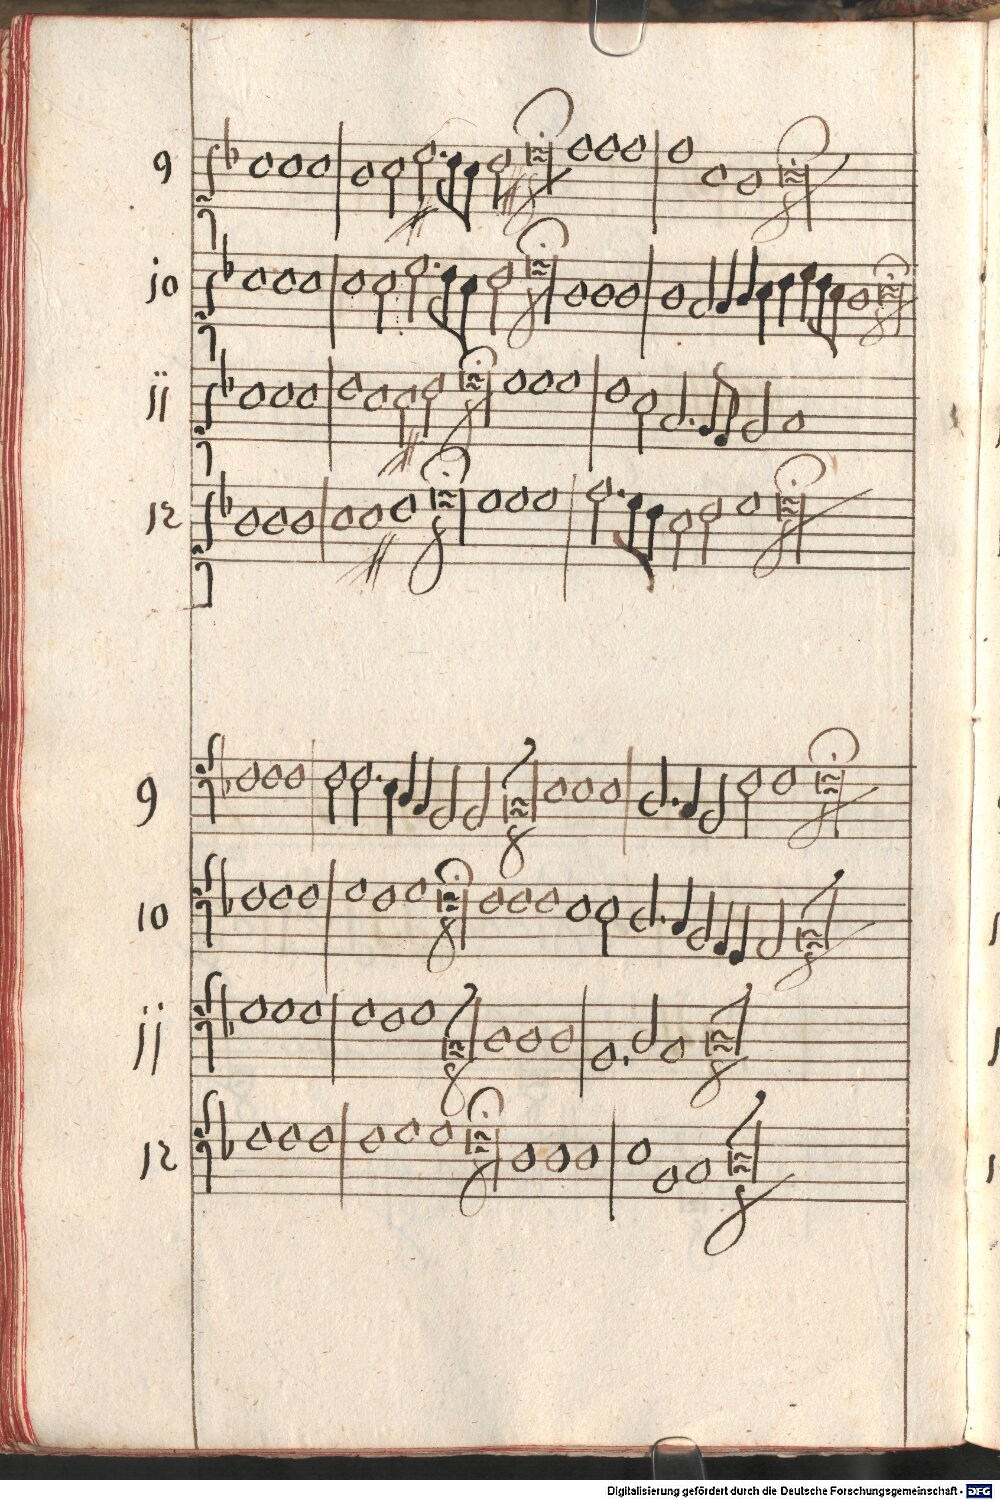 9
jo
jj
12
9
10
jj
12
Digitalisierung gefördert durch die Deutsche Forschungsgemeinschaft - DFG